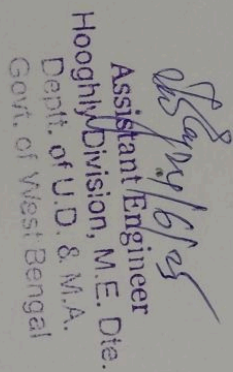 24/6/25
Assistant Engineer
Hooghly Division, M.E. Dte.
Deptt. of U.D. & M.A.
Govt. of West Bengal